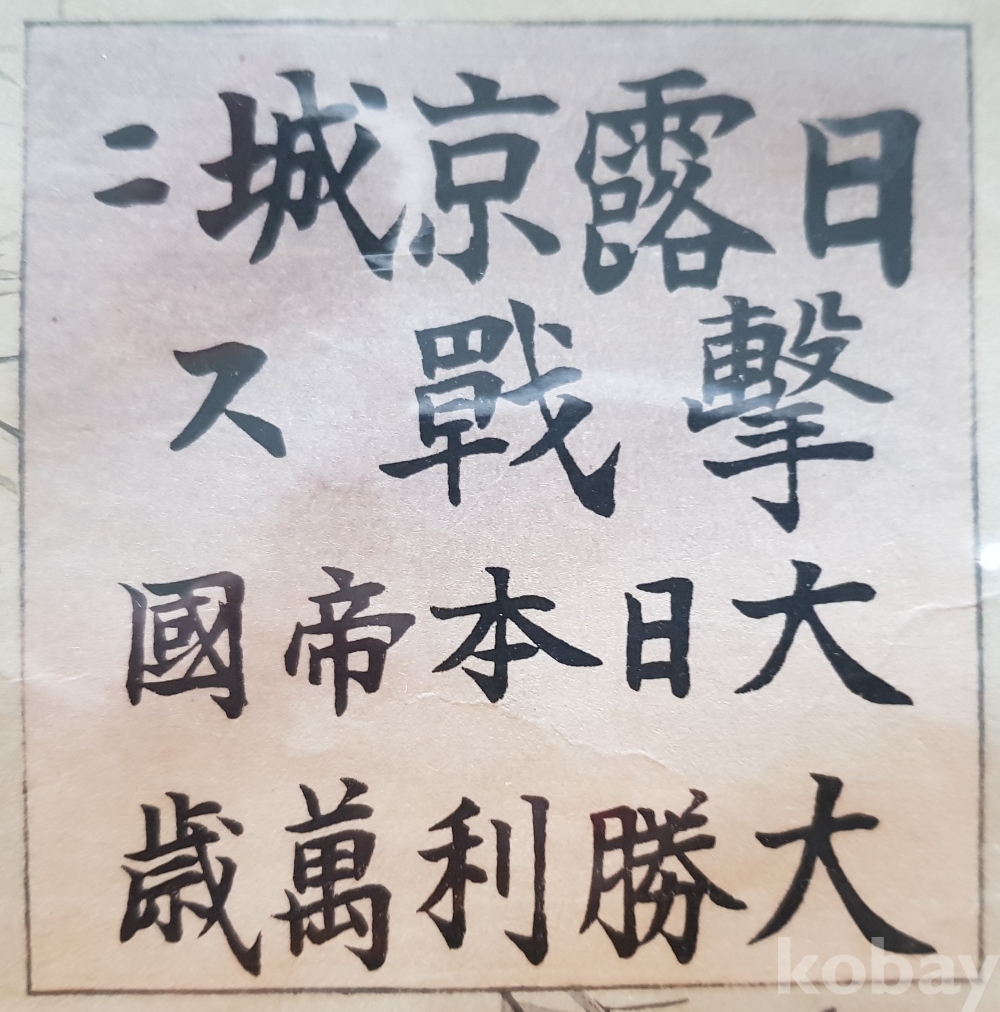 日露京城ニ
擊戰ス
大日本帝國
大勝利萬歳
kobay